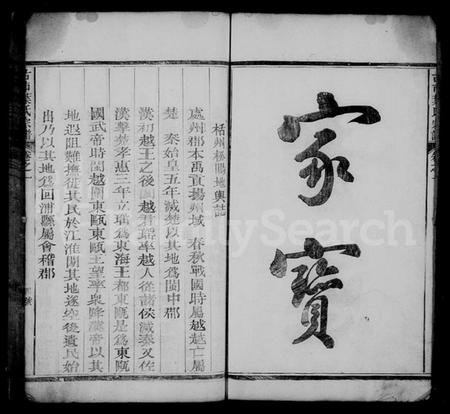 家寶
栝州極陽地輿誌
處州郡本禹貢揚州域　春秋戰國時屬越越亡屬
楚　秦始皇五年滅楚以其地為閩中郡
漢初越王之後閩越君率越人從諸侯滅秦又佐
漢擊楚孝惠三年立為東海王都東甌是為東甌
國武帝時閩越圍東甌東甌王望率眾降漢帝以其
地遐阻難撫徙其民於江淮閒其地遂空後遺民始
出乃以其地為回浦縣屬會稽郡
FamilySearch